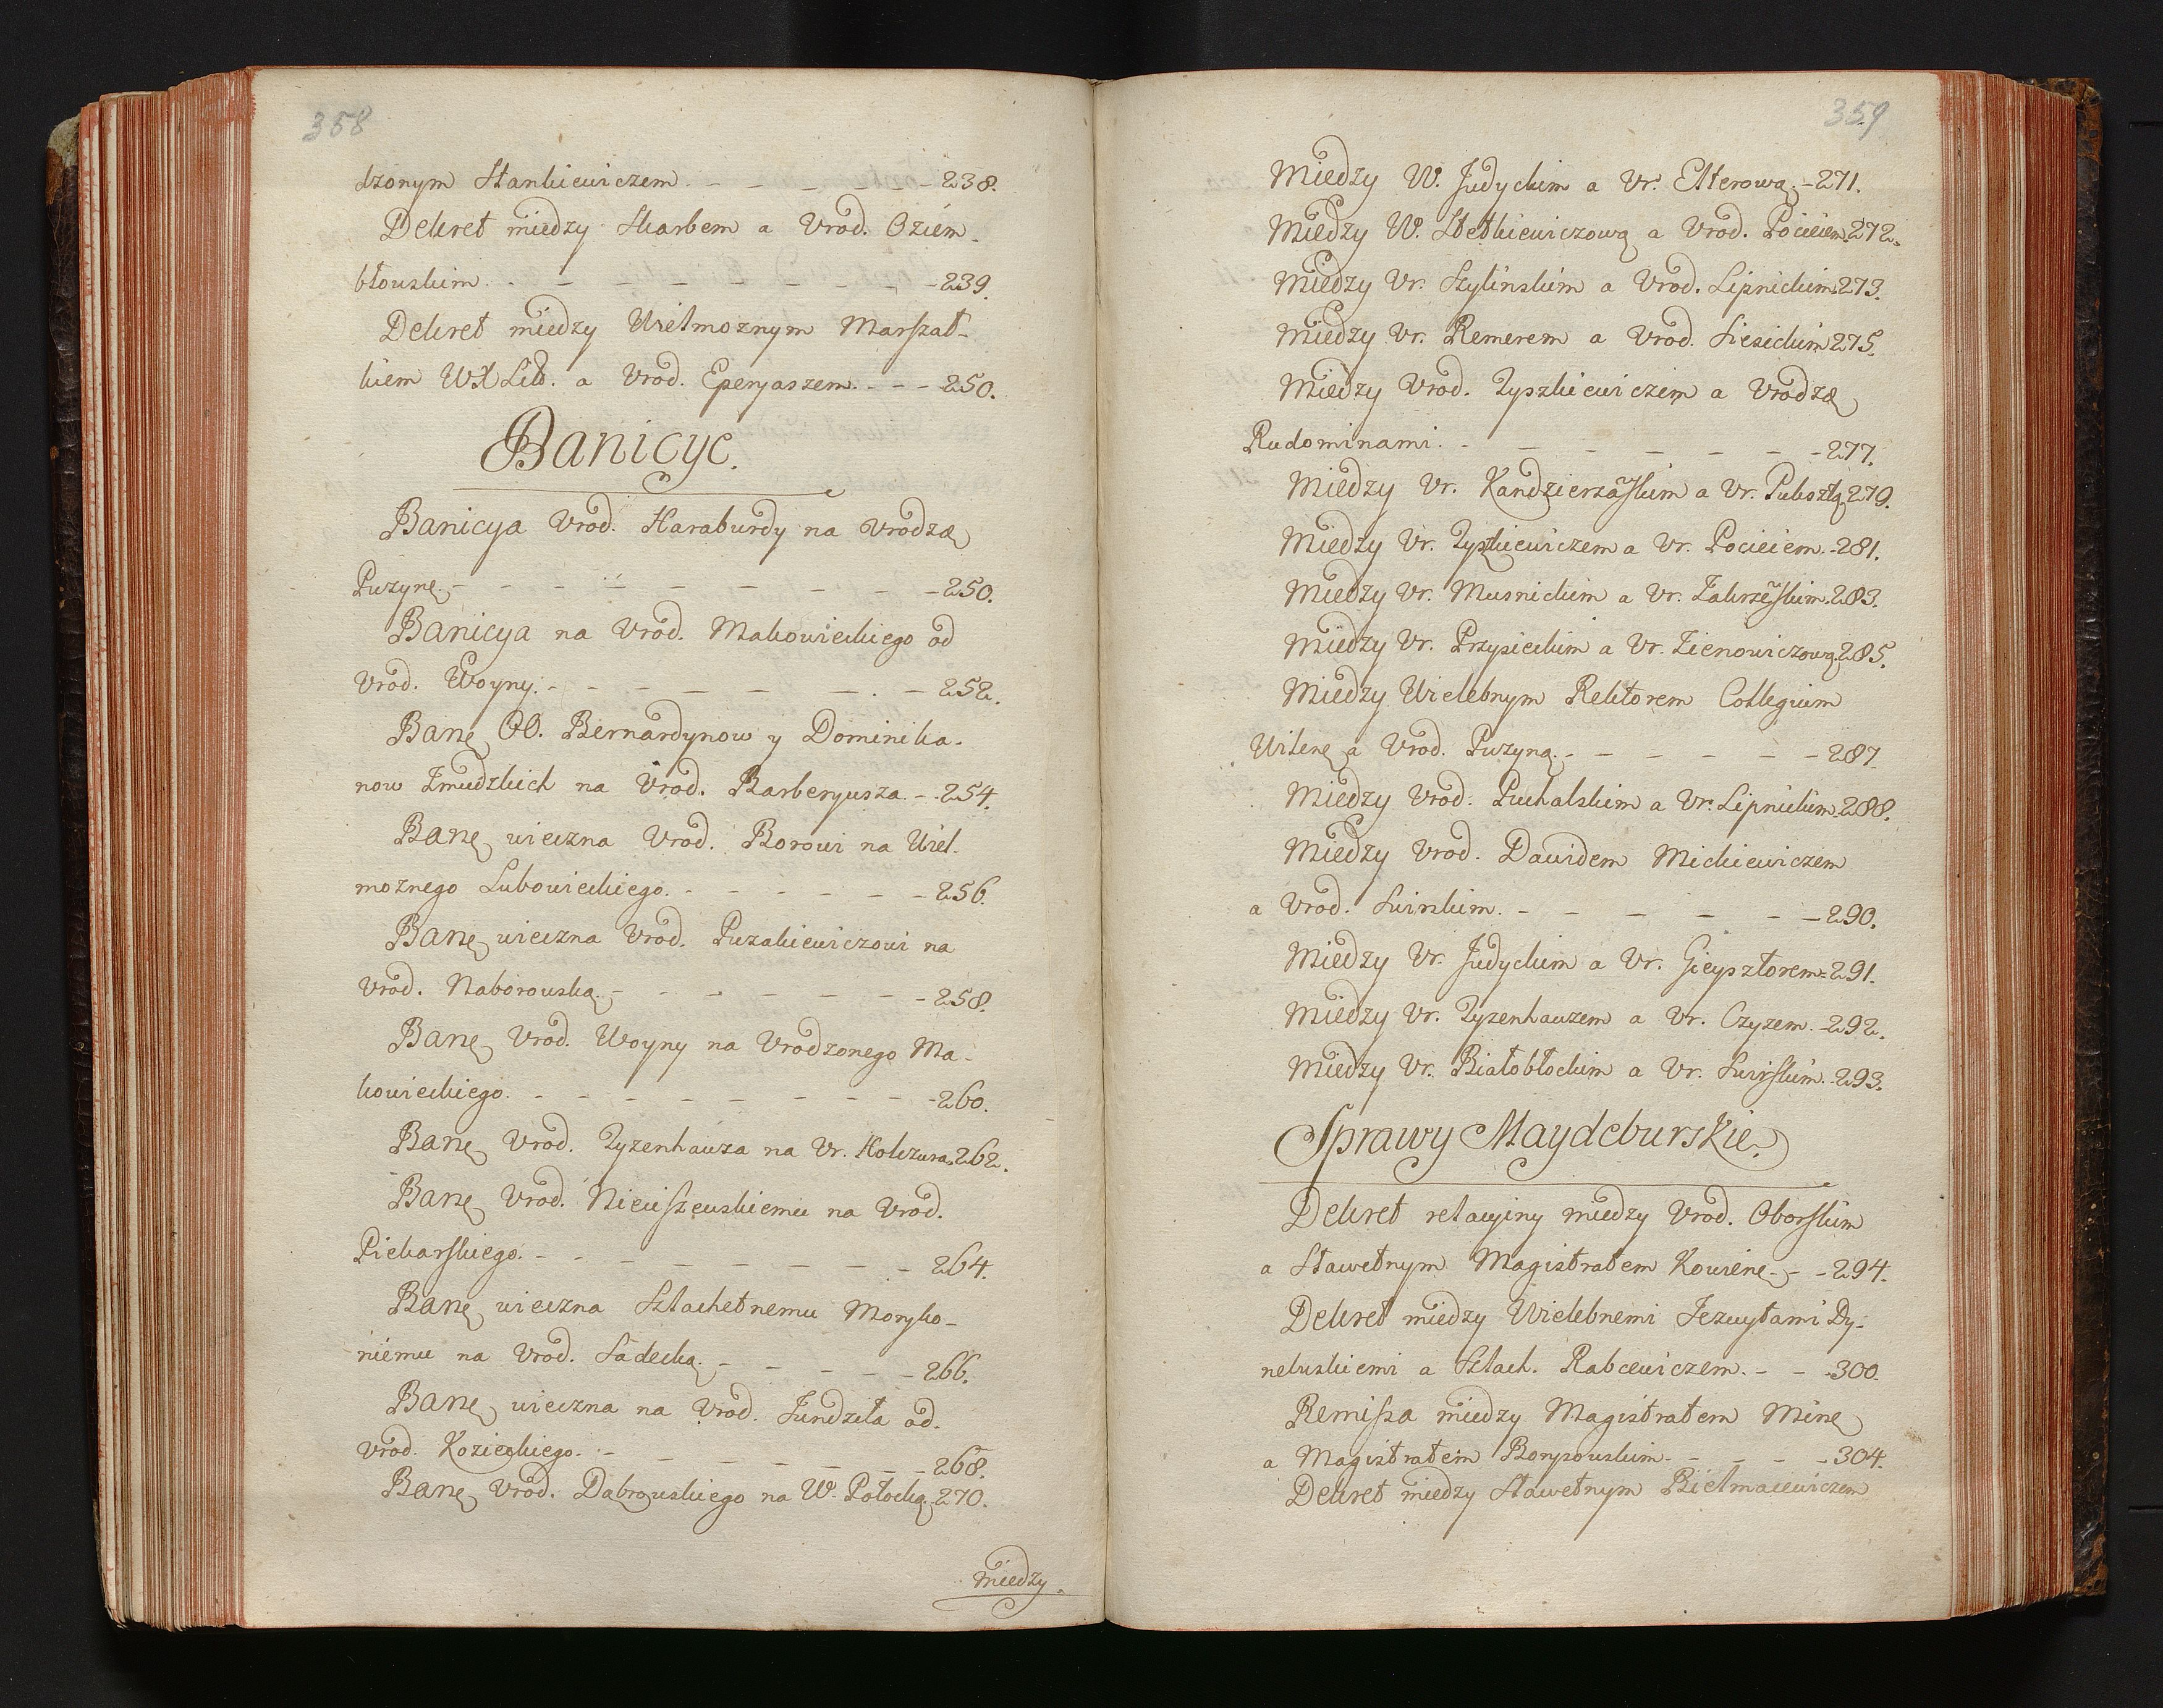 358
dzonym Stankiewiczem. - - - - - - 238.
Dekret miedzy Skarbem a Vrod. Oziem-
błouskim. - - - - - - - - 239.
Dekret miedzy Wielmoznym Marszał-
kiem WXLitt. a Vrod. Eperyaszem. - - - 250.
Banicye.
Banicya Vrod. Haraburdy na Vrodzę
Puzynę. - - - - - - - - 250.
Banicya na Vrod. Makowieckiego od
Vrod. Woyny. - - - - - - - 252.
Banę OO. Bernardynow y Dominika-
now Zmudzkich na Vrod. Barberyusza. - 254.
Banę wieczna Vrod. Borowi na Wiel-
moznego Lubowieckiego. - - - - - - 256.
Banę wieczna Vrod. Puzakiewiczowi na
Vrod. Naborouską. - - - - - - - 258.
Banę Vrod. Woyny na Vrodzonego Ma-
kowieckiego. - - - - - - - - - 260.
Banę Vrod. Zyzenhauza na Vr. Kolczura. 262.
Banę Vrod. Nieciszeuskiemu na Vrod.
Piekarskiego. - - - - - - - - 264.
Banę wieczna Szlachetnemu Moryko-
niemu na Vrod. Sadecką. - - - - - 266.
Banę wieczna na Vrod. Jundziła od
Vrod. Kozieckiego. - - - - - - - 268.
Banę Vrod. Dąbrouskiego na W. Potocką. 270.
miedzy.
359
Miedzy W. Judyckim a Vr. Etterową. - 271.
Miedzy W. Stetkiewiczową a Vrod. Pocieiem. 272.
Miedzy Vr. Szylinskim a Vrod. Lipnickim. 273.
Miedzy Vr. Remerem a Vrod. Siesickim 275.
Miedzy Vrod. Zyszkiewiczem a Vrodzę
Rudominami. - - - - - - - 277.
Miedzy Vr. Kandzierzaskim a Vr. Pukoztą. 279.
Miedzy Vr. Tyszkiewiczem a Vr. Pocieiem. - 281.
Miedzy Vr. Musnickim a Vr. Zakrzeskim. 283.
Miedzy Vr. Przysieckim a Vr. Zienowiczową. 285.
Miedzy Wielebnym Rektorem Collegium
Wilenę a Vrod. Puzyną. - - - - - - 287.
Miedzy Vrod. Puchalskim a Vr. Lipnickim. 288.
Miedzy Vrod. Dawidem Mickiewiczem
a Vrod. Suirskim. - - - - - - 290.
Miedzy Vr. Judyckim a Vr. Gieysztorem. - 291.
Miedzy Vr. Zyzenhauzem a Vr. Czyzem. - 292.
Miedzy Vr. Białobłockim a Vr. Suirskim. - 293.
Sprawy Maydeburskie.
Dekret retacyiny miedzy Vrod. Oborskim
a Sławetnym Magistratem Kowienę. - - 294.
Dekret miedzy Wielebnemi Jezuytami Dy-
neburskiemi a Szlach. Rabcewiczem. - - - 300.
Remissa miedzy Magistratem Minę
a Magistratem Borysouskim. - - - - 304.
Dekret miedzy Sławetnym Bielmacewiczem